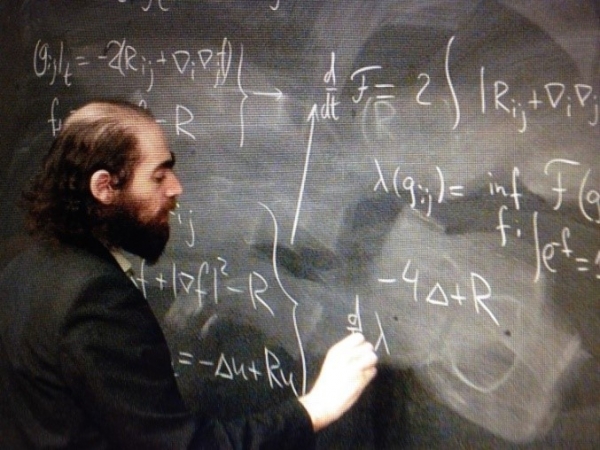 (g_ij)_t = -2(R_ij + ∇_i∇_j f)
- R
} → d/dt ℱ = 2 ∫ |R_ij + ∇_i∇_j
λ(g_ij) = inf ℱ(g
f: ∫e^-f =
ij
f + |∇f|² - R
-4Δ+R
d λ
= -Δu + Ru